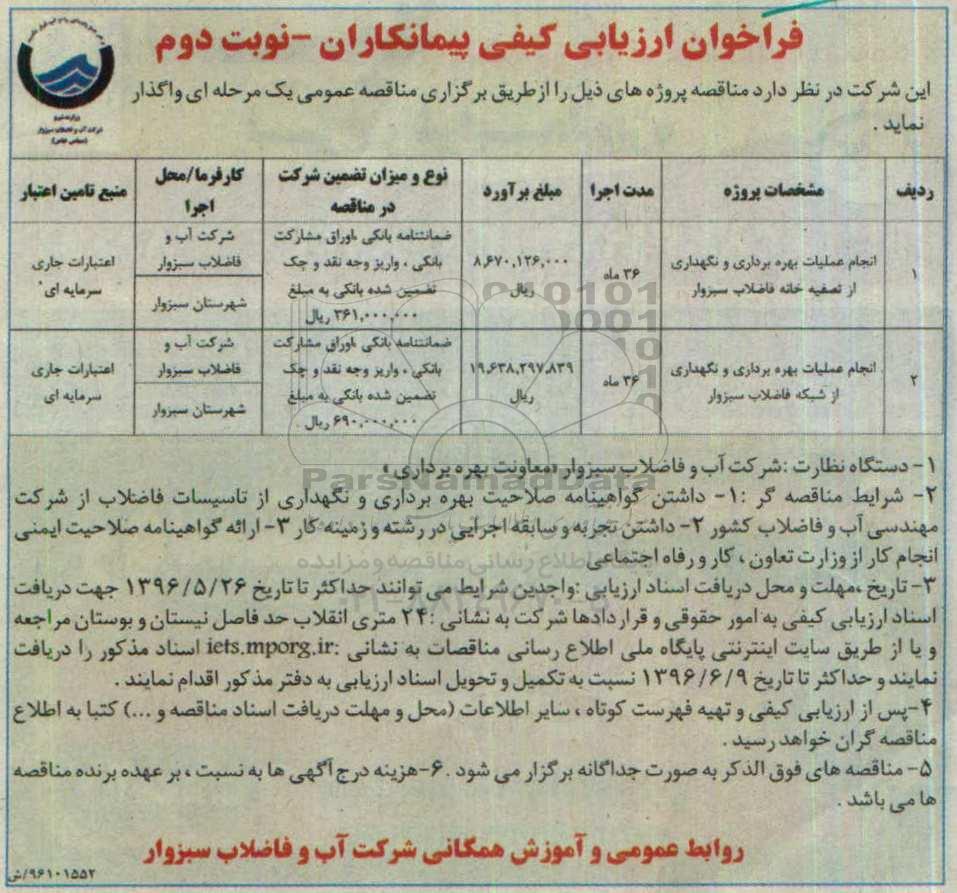 فراخوان ارزیابی کیفی پیمانکاران -نوبت دوم
این شرکت در نظر دارد مناقصه پروژه های ذیل را ازطریق برگزاری مناقصه عمومی یک مرحله ای واگذار
نماید .
وزارت نیرو
شرکت آب و فاضلاب سبزوار
(سهامی خاص)
ردیف
مشخصات پروژه
مدت اجرا
مبلغ برآورد
نوع و میزان تضمین شرکت
در مناقصه
کارفرما/محل
اجرا
منبع تامین اعتبار
۱
انجام عملیات بهره برداری و نگهداری
از تصفیه خانه فاضلاب سبزوار
۳۶ ماه
۸,۶۷۰,۱۲۶,۰۰۰
ریال
ضمانتنامه بانکی ،اوراق مشارکت
بانکی ، واریز وجه نقد و چک
تضمین شده بانکی به مبلغ
۳۶۱,۰۰۰,۰۰۰ ریال
شرکت آب و
فاضلاب سبزوار
شهرستان سبزوار
اعتبارات جاری
سرمایه ای
۲
انجام عملیات بهره برداری و نگهداری
از شبکه فاضلاب سبزوار
۳۶ ماه
۱۹,۶۳۸,۲۹۷,۸۳۹
ریال
ضمانتنامه بانکی ،اوراق مشارکت
بانکی ، واریز وجه نقد و چک
تضمین شده بانکی به مبلغ
۶۹۰,۰۰۰,۰۰۰ ریال .
شرکت آب و
فاضلاب سبزوار
شهرستان سبزوار
اعتبارات جاری
سرمایه ای
۱- دستگاه نظارت :شرکت آب و فاضلاب سبزوار «معاونت بهره برداری »
ParsNamadData
۲- شرایط مناقصه گر :۱- داشتن گواهینامه صلاحیت بهره برداری و نگهداری از تاسیسات فاضلاب از شرکت
مهندسی آب و فاضلاب کشور ۲- داشتن تجربه و سابقه اجرایی در رشته و زمینه کار ۳- ارائه گواهینامه صلاحیت ایمنی
انجام کار از وزارت تعاون ، کار و رفاه اجتماعی
اطلاع رسانی مناقصه و مزایده
۳- تاریخ ،مهلت و محل دریافت اسناد ارزیابی :واجدین شرایط می توانند حداکثر تا تاریخ ۱۳۹۶/۵/۲۶ جهت دریافت
اسناد ارزیابی کیفی به امور حقوقی و قراردادها شرکت به نشانی :۲۴ متری انقلاب حد فاصل نیستان و بوستان مراجعه
و یا از طریق سایت اینترنتی پایگاه ملی اطلاع رسانی مناقصات به نشانی :iets.mporg.ir اسناد مذکور را دریافت
نمایند و حداکثر تا تاریخ ۱۳۹۶/۶/۹ نسبت به تکمیل و تحویل اسناد ارزیابی به دفتر مذکور اقدام نمایند .
۴-پس از ارزیابی کیفی و تهیه فهرست کوتاه ، سایر اطلاعات (محل و مهلت دریافت اسناد مناقصه و ...) کتبا به اطلاع
مناقصه گران خواهد رسید .
۵- مناقصه های فوق الذکر به صورت جداگانه برگزار می شود .۶-هزینه درج آگهی ها به نسبت ، بر عهده برنده مناقصه
ها می باشد .
روابط عمومی و آموزش همگانی شرکت آب و فاضلاب سبزوار
۹۶۱۰۱۵۵۲/ش